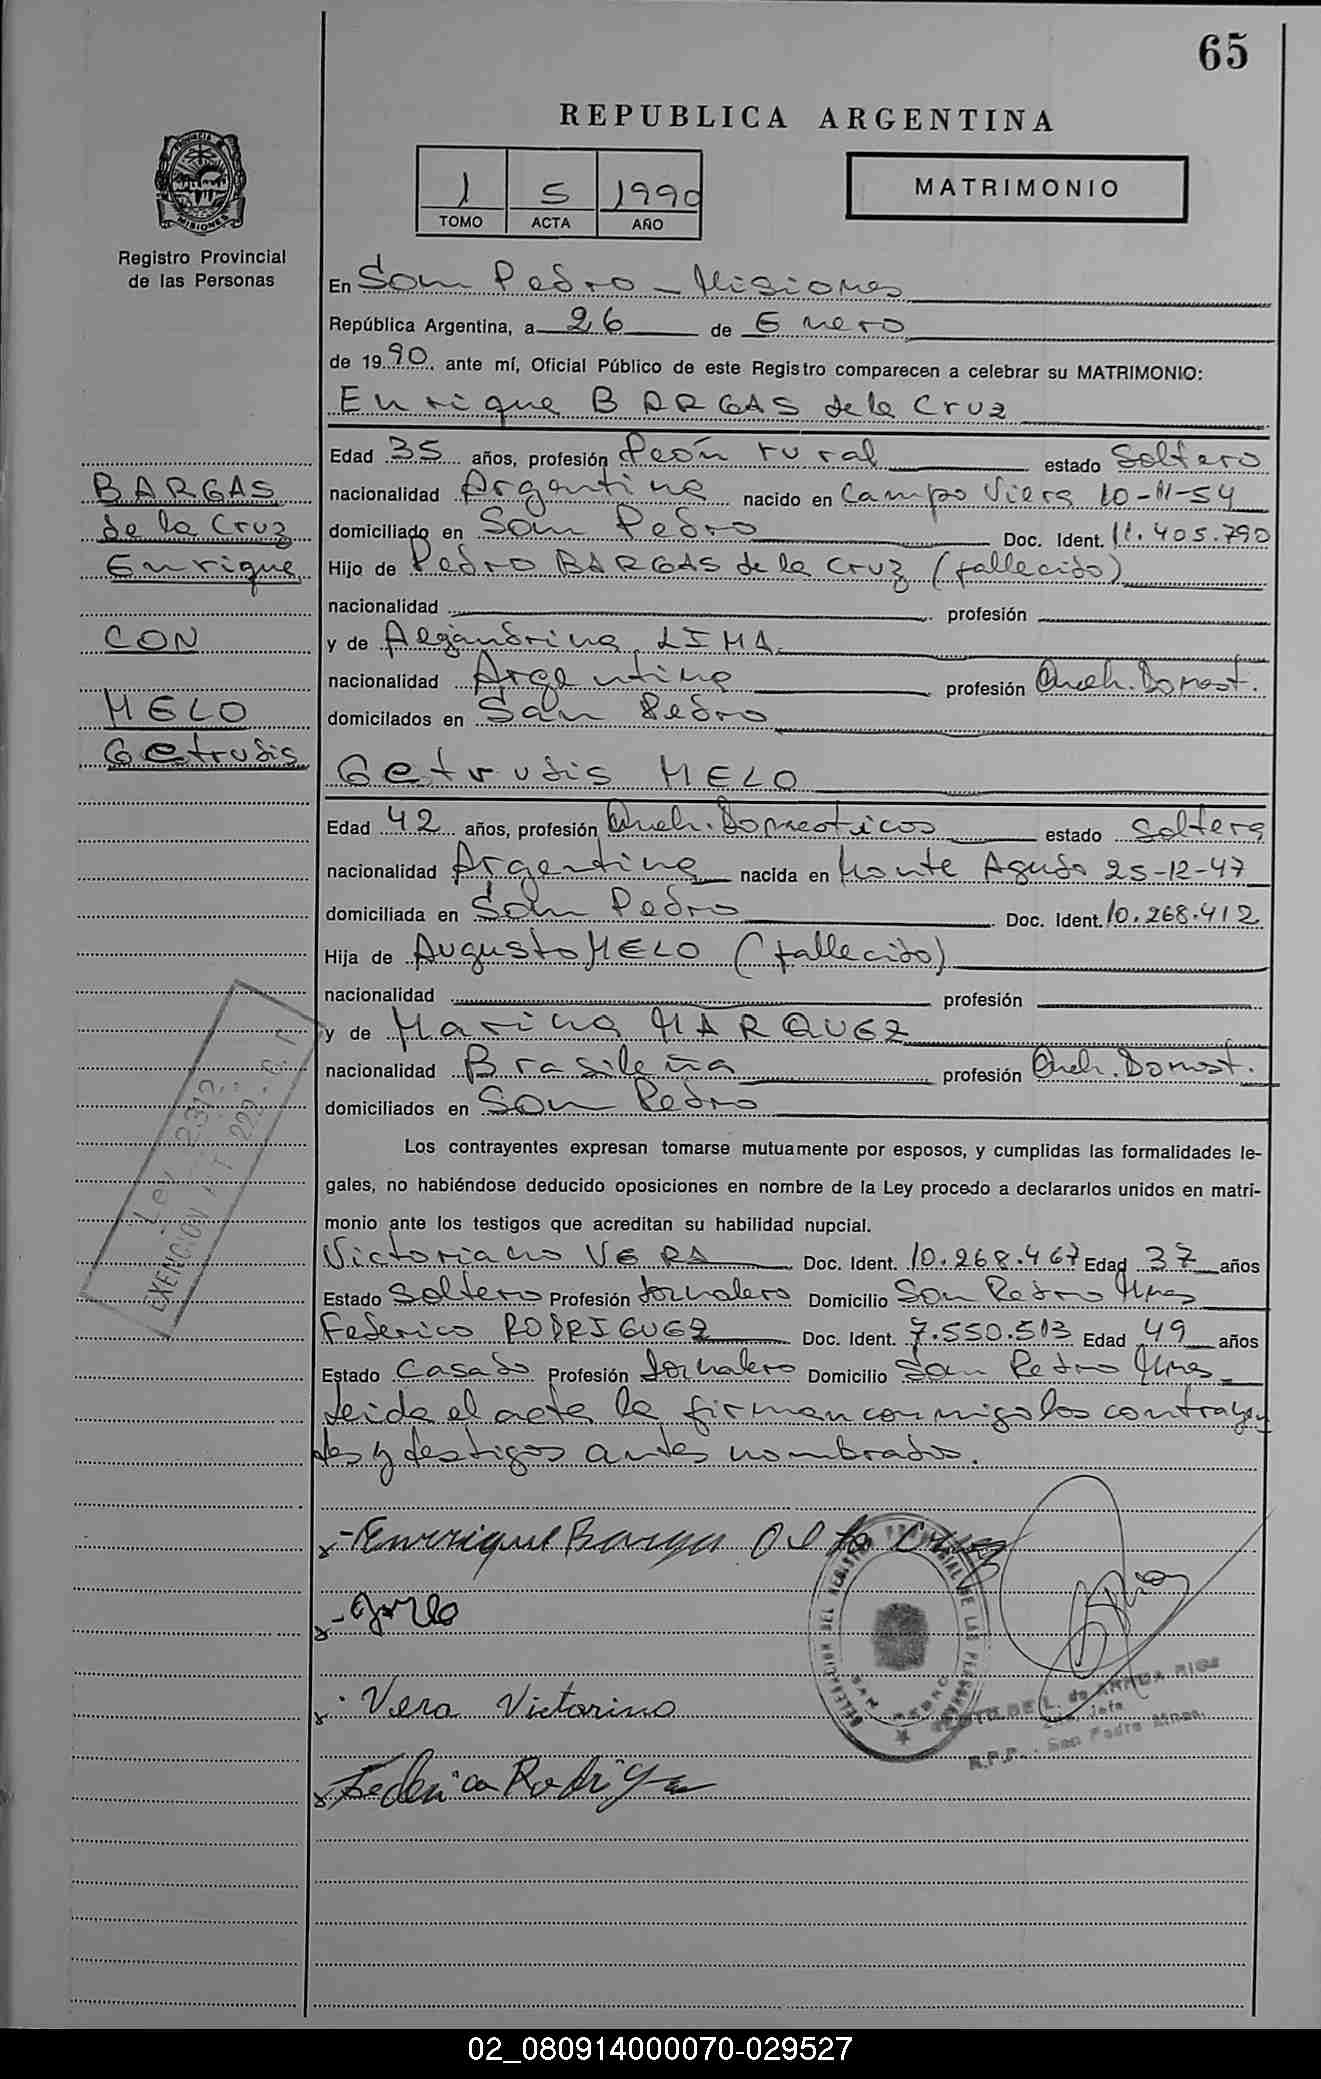 65
REPUBLICA ARGENTINA
1 5 1990
TOMO ACTA AÑO
MATRIMONIO
PROVINCIA DE MISIONES
Registro Provincial
de las Personas
En San Pedro - Misiones
República Argentina, a 26 de Enero
de 1990. ante mí, Oficial Público de este Registro comparecen a celebrar su MATRIMONIO:
Enrique BARGAS de la Cruz
Edad 35 años, profesión Peón rural estado Soltero
nacionalidad Argentina nacido en Campo Viera 10-11-54
domiciliado en San Pedro Doc. Ident. 11.405.790
Hijo de Pedro BARGAS de la Cruz (fallecido)
nacionalidad profesión
y de Alejandrina LIMA
nacionalidad Argentina profesión Queh. Domest.
domicilados en San Pedro
BARGAS
de la Cruz
Enrique
CON
MELO
Getrudis
Getrudis MELO
Edad 42 años, profesión Queh. Domesticos estado Soltera
nacionalidad Argentina nacida en Monte Agudo 25-12-47
domiciliada en San Pedro Doc. Ident. 10.268.412
Hija de Augusto MELO (fallecido)
nacionalidad profesión
y de Marina MARQUEZ
nacionalidad Brasileña profesión Queh. Domest.
domiciliados en San Pedro
Ley 2312
EXENCION ART 229
Los contrayentes expresan tomarse mutuamente por esposos, y cumplidas las formalidades le-
gales, no habiéndose deducido oposiciones en nombre de la Ley procedo a declararlos unidos en matri-
monio ante los testigos que acreditan su habilidad nupcial.
Victoriano VERA Doc. Ident. 10.268.467 Edad 37 años
Estado Soltero Profesión Jornalero Domicilio San Pedro Mnes
Federico RODRIGUEZ Doc. Ident. 7.550.513 Edad 49 años
Estado Casado Profesión Jornalero Domicilio San Pedro Mnes
Leida el acta la firman conmigo los contrayen
tes y testigos antes nombrados.
Enrrique Barga De la Cruz
Vera Victorino
Federico Rodrigue
DELEGACION DEL REGISTRO PROVINCIAL DE LAS PERSONAS
SAN PEDRO
CLOTILDE L. de ARRUA RIOS
Jefa
R.P.P. - San Pedro Mnes.
02_080914000070-029527